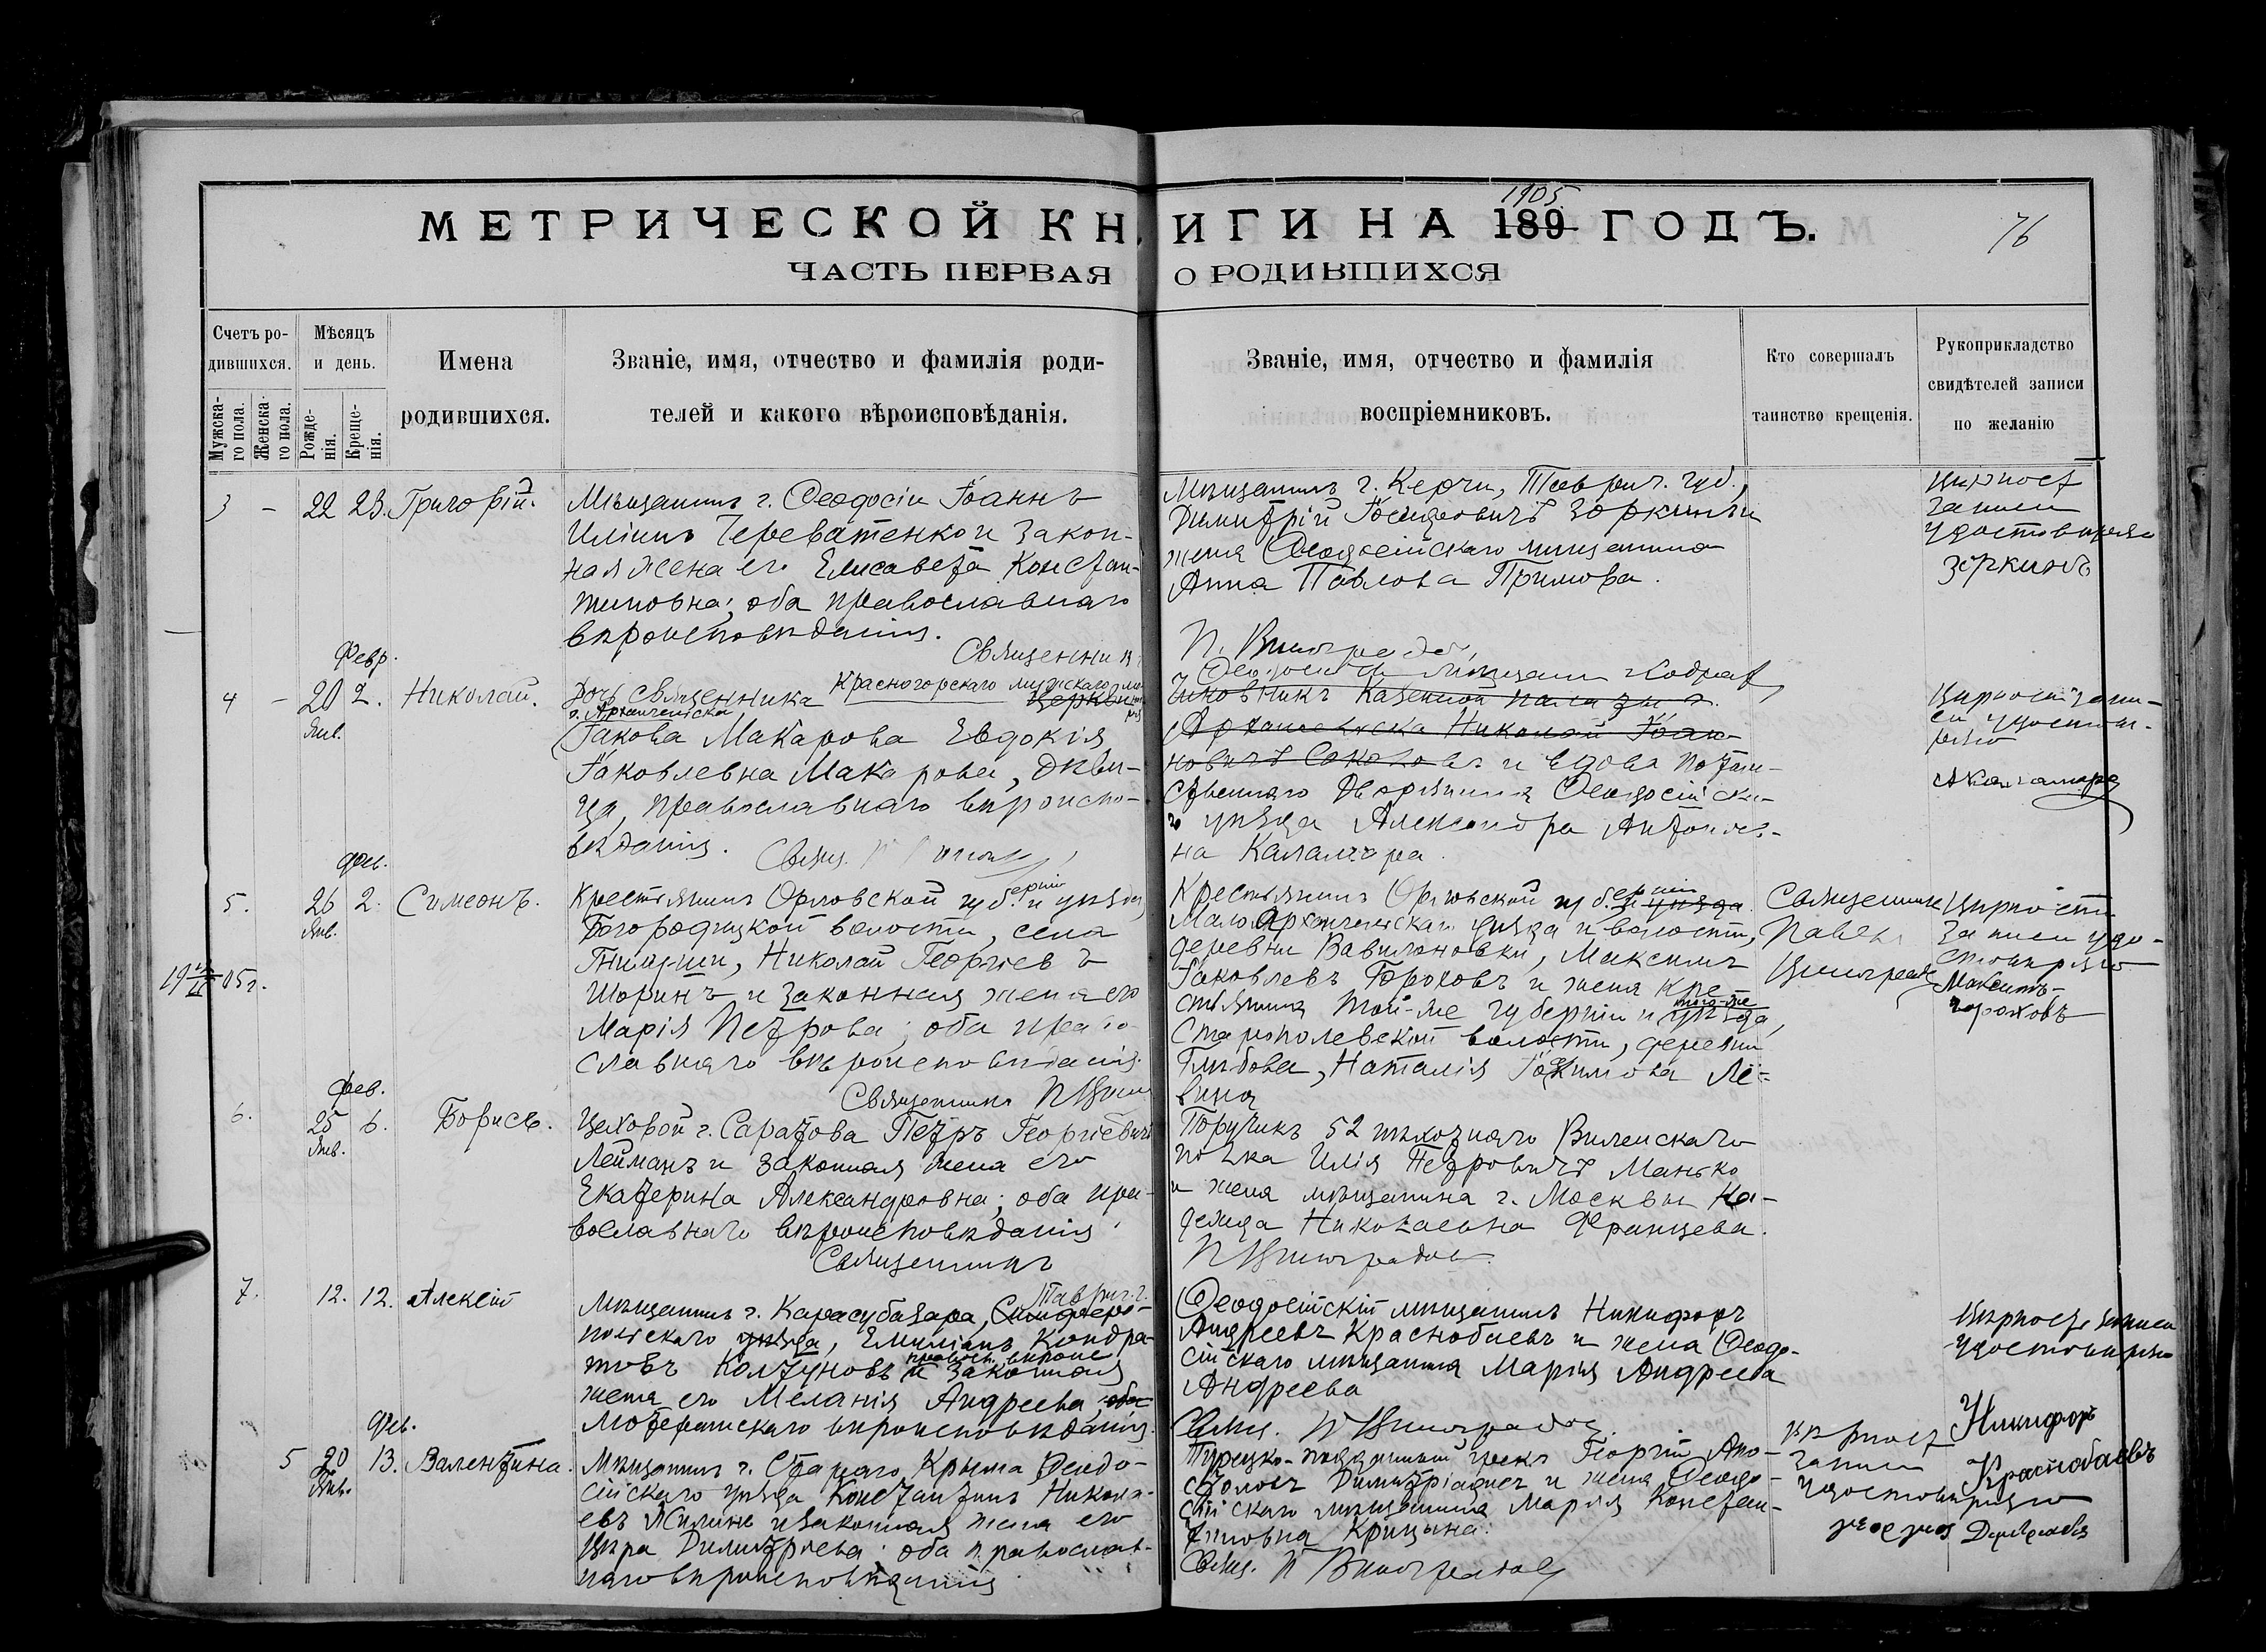 МЕТРИЧЕСКОЙ КНИГИ НА 189 ГОДЪ.
1905
76
ЧАСТЬ ПЕРВАЯ О РОДИВШИХСЯ
Счетъ ро-
дившихся.
Мужска-
го пола.
Женска-
го пола.
Мѣсяцъ
и день.
Рожде-
нія.
Креще-
нія.
Имена
родившихся.
Званіе, имя, отчество и фамилія роди-
телей и какого вѣроисповѣданія.
Званіе, имя, отчество и фамилія
воспріемниковъ.
Кто совершалъ
таинство крещенія.
Рукоприкладство
свидѣтелей записи
по желанію
3 - 22 23. Григорій.
Мѣщанинъ г. Ѳеодосіи Іоаннъ
Иліинъ Череватенко и закон-
ная жена его Елисавета Констан-
тиновна; оба православнаго
вѣроисповѣданія.
Священникъ
Мѣщанинъ г. Керчи, Таврич. губ.,
Димитрій Зоркинъ и
жена Ѳеодосійскаго мѣщанина
Анна Павлова Примова.
П. Виноградовъ
Вѣрность
записи
удостовѣряю
Зоркинъ
Февр.
4 - 20 2. Николай.
Янв.
Дочь священника Красногорскаго
г. Архангельска
Іакова Макарова Евдокія
Іаковлевна Макарова, дѣви-
ца, православнаго вѣроиспо-
вѣданія.
Свящ.
чиновникъ Казенной палаты г.
Архангельска Николай Іоан-
новичъ Соколовъ и вдова потом-
ственнаго дворянина Ѳеодосійска-
го уѣзда Александра Антонов-
на Каламара.
Вѣрность запи-
си удостовѣ-
ряю
А Каламара
Фев.
5. 26 2. Симеонъ.
Янв.
Крестьянинъ Орловской губерніи и уѣзда,
Богородицкой волости, села
Николай Георгіевъ
Шоринъ и законная жена его
Марія Петрова; оба право-
славнаго вѣроисповѣданія.
Священникъ
Крестьянинъ Орловской губерніи уѣзда
Малоархангельскаго уѣзда и волости,
деревни Вавилоновки, Максимъ
Іаковлевъ Гороховъ и жена кре-
стьянина той-же губерніи и того-же уѣзда,
волости, деревни
Глѣбова, Наталія Іоакимова Ле-
вина
Священникъ
Павелъ
Виноградовъ
Вѣрность
записи удо-
стовѣряю
Максимъ
Гороховъ
19 05 г.
Фев.
6. 25 6. Борисъ.
Янв.
Цеховой г. Саратова Петръ Георгіевичъ
Лейманъ и законная жена его
Екатерина Александровна; оба пра-
вославнаго вѣроисповѣданія
Священникъ
Поручикъ 52 пѣхотнаго Виленскаго
полка Илія Петровичъ Манько
и жена мѣщанина г. Москвы На-
дежда Николаевна Францева.
П Виноградовъ
7. 12. 12. Алексій
Мѣщанинъ г. Карасубазара, Таврич. г. Симферо-
польскаго уѣзда, Емиліанъ Кондра-
товъ Колтуновъ правосл. вѣроисп и законная
жена его Меланія Андреева, оба
лютеранскаго вѣроисповѣданія.
Ѳеодосійскій мѣщанинъ Никифоръ
Андреевъ Краснобаевъ и жена Ѳеодо-
сійскаго мѣщанина Марія Андреева
Андреева
Свящ. П Виноградовъ
Вѣрность записи
удостовѣряю
Никифоръ
Краснобаевъ
Фев.
5 20 13. Валентина.
Янв.
Мѣщанинъ г. Стараго Крыма Ѳеодо-
сійскаго уѣзда Константинъ Никола-
евъ Жилинъ и законная жена его
Вѣра Димитріева; оба православ-
наго вѣроисповѣданія
Турецко-подданный грекъ Георгій Апо-
столовъ и жена Ѳеодо-
сійскаго мѣщанина Марія Констан-
тиновна Крицына.
Свящ. П Виноградовъ
вѣрность
записи
удостовѣряю